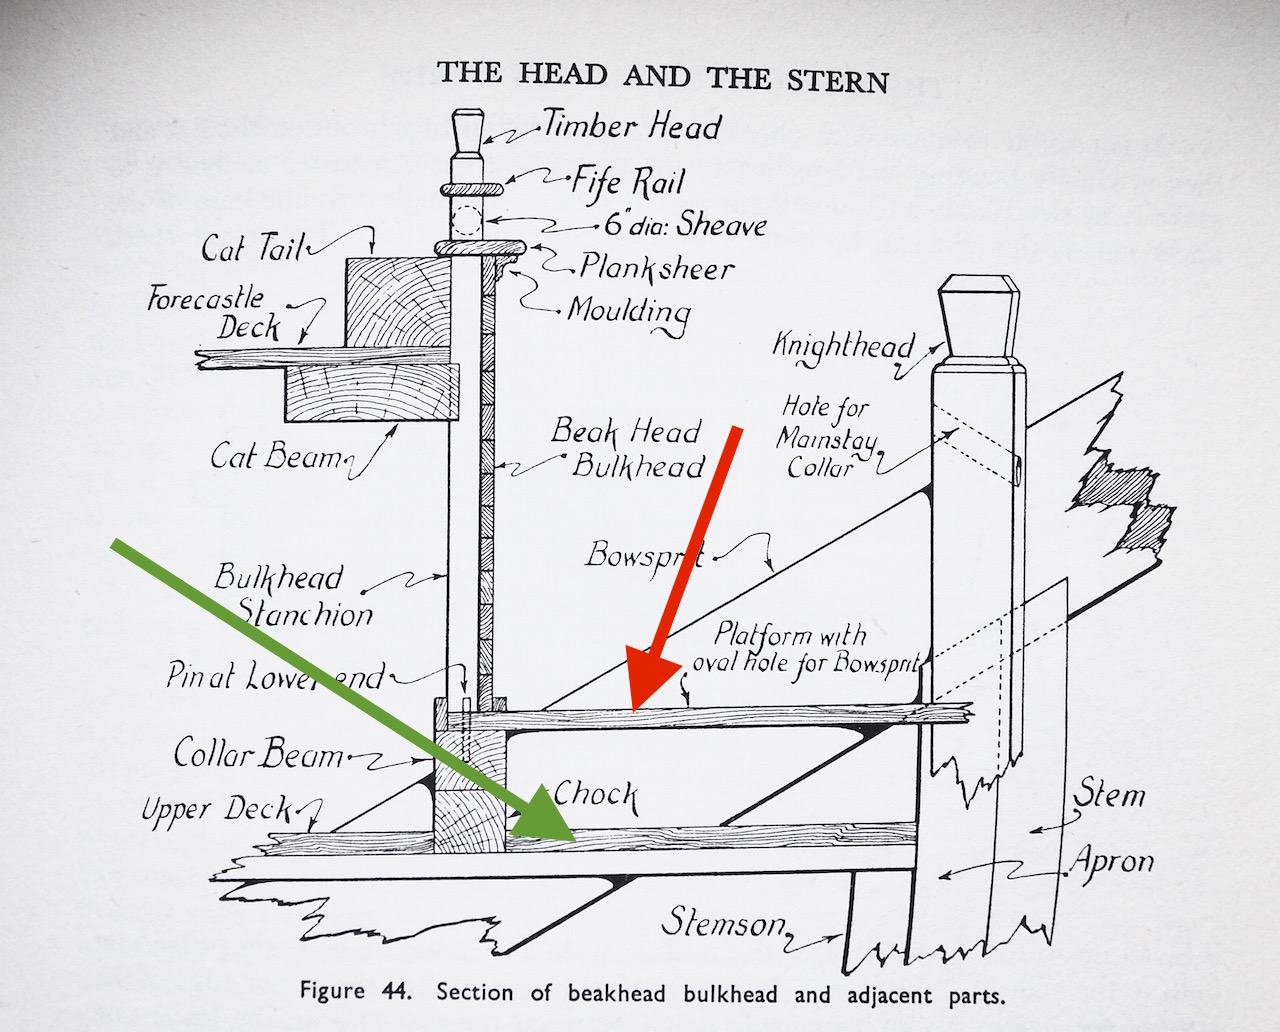 THE HEAD AND THE STERN
Timber Head
Fife Rail
6" dia: Sheave
Cat Tail
Planksheer
Forecastle
Deck
Moulding
Knighthead
Hole for
Mainstay
Collar
Beak Head
Bulkhead
Cat Beam
Bowsprit
Bulkhead
Stanchion
Platform with
oval hole for Bowsprit
Pin at Lower end
Collar Beam
Chock
Upper Deck
Stem
Apron
Stemson
Figure 44. Section of beakhead bulkhead and adjacent parts.